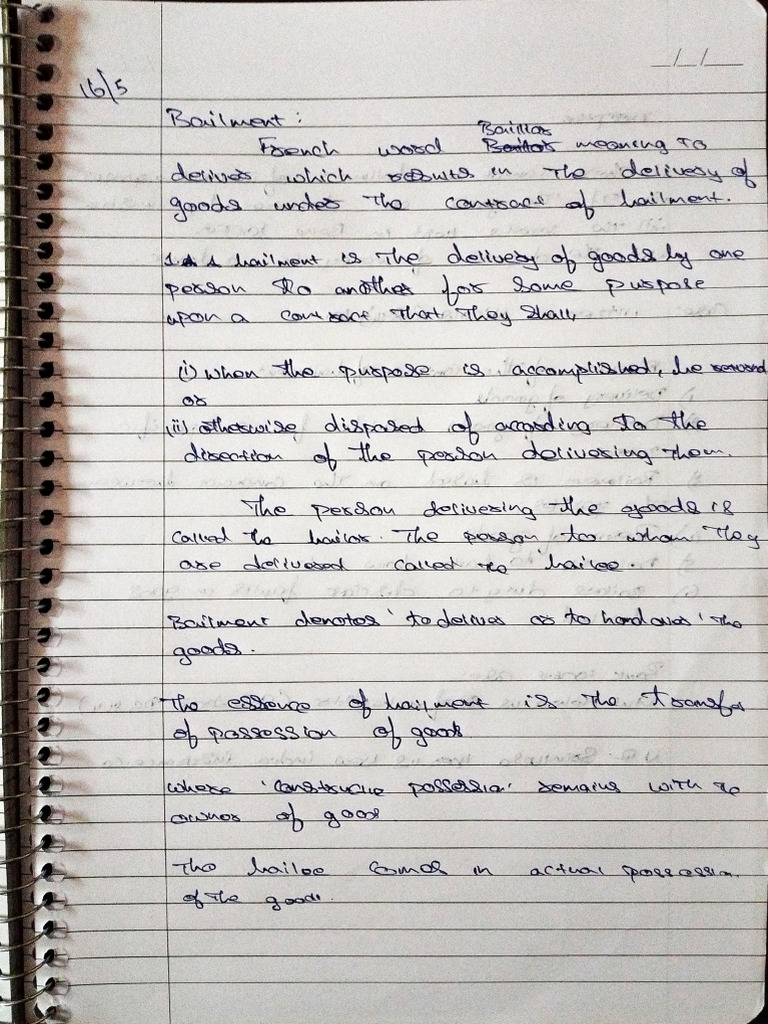 16/5
Bailment:
Baillor
French word Baillor meaning to
deliver which results in the delivery of
goods under the contract of bailment.
bailment is the delivery of goods by one
person to another for some purpose
upon a contract that they shall,
(i) when the purpose is accomplished, be returned
or
(ii) otherwise disposed of according to the
direction of the person delivering them.
The person delivering the goods is
called the bailor. The person to whom they
are delivered called the 'bailee.
Bailment denotes 'to deliver or to handover' the
goods.
The essence of bailment is the transfer
of possession of goods
where 'constructive possession' remains with the
owner of goods
The bailee comes in actual possession
of the goods.